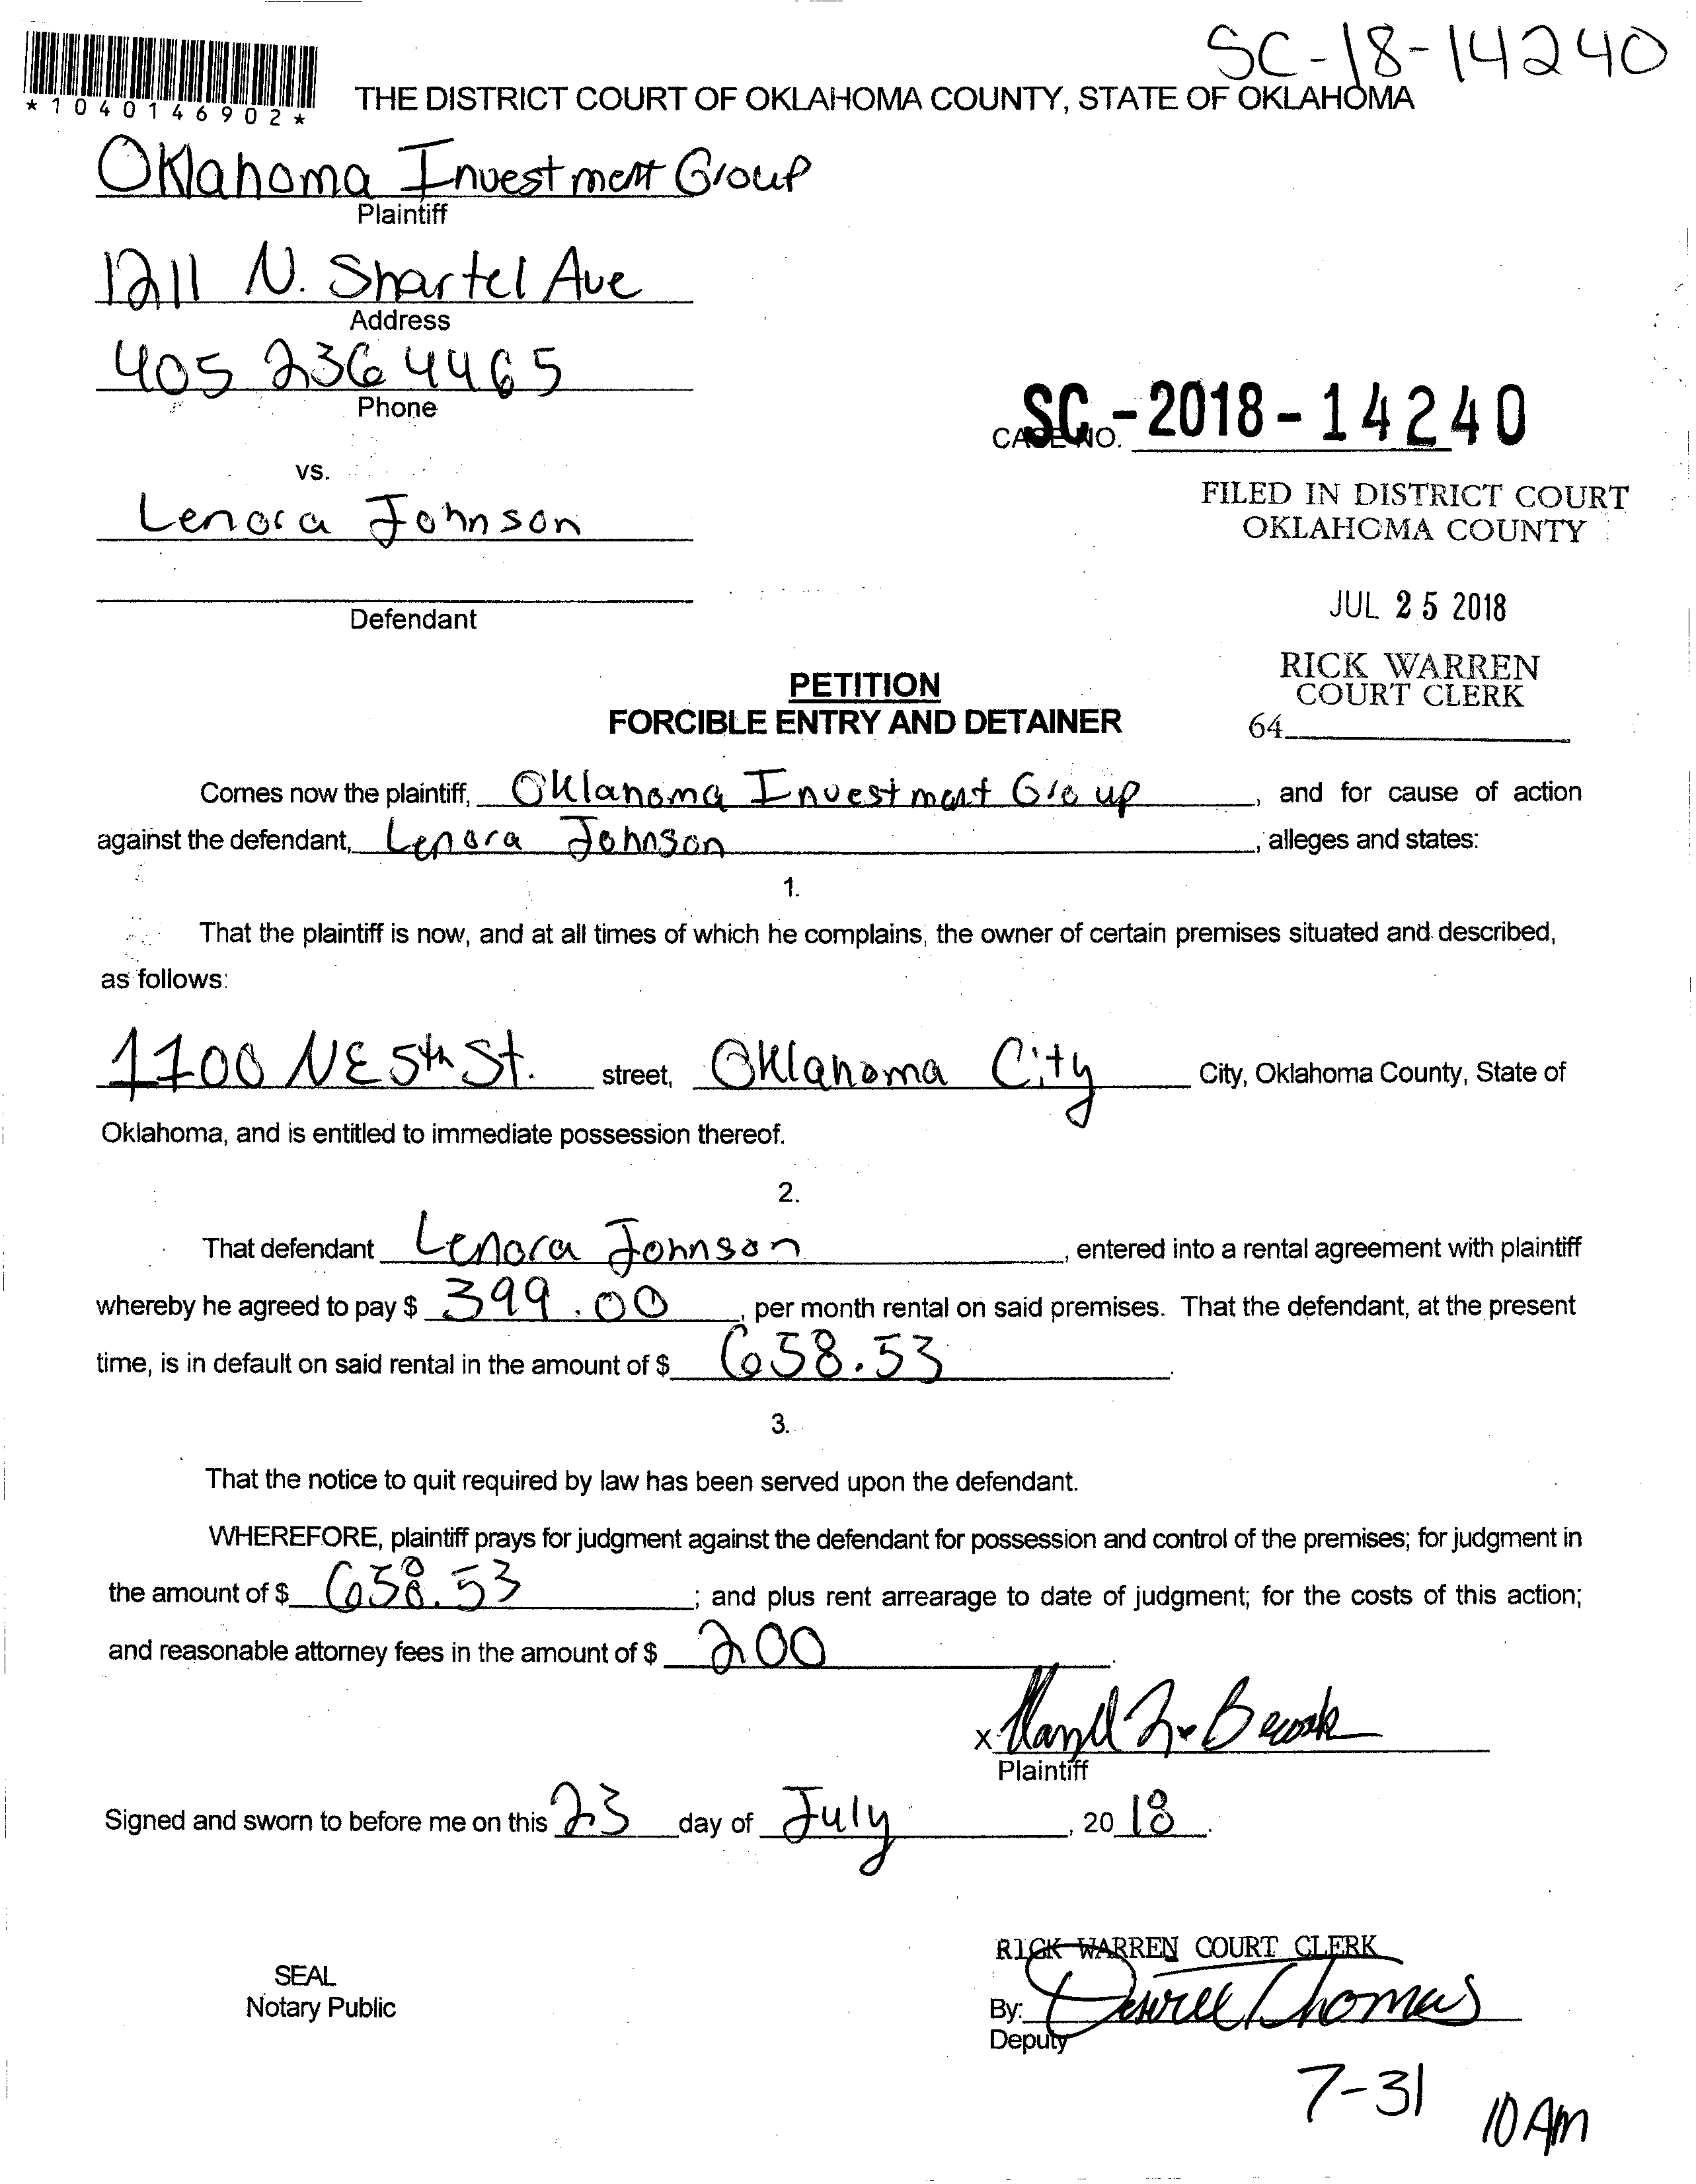 SC-18-14240
*1040146902*
THE DISTRICT COURT OF OKLAHOMA COUNTY, STATE OF OKLAHOMA
Oklahoma Investment Group
Plaintiff
1211 N. Shartel Ave
Address
405 236 4465
Phone
CASE NO. SC-2018-14240
vs.
Lenora Johnson
Defendant
FILED IN DISTRICT COURT
OKLAHOMA COUNTY
JUL 25 2018
RICK WARREN
COURT CLERK
64
PETITION
FORCIBLE ENTRY AND DETAINER
Comes now the plaintiff, Oklahoma Investment Group, and for cause of action
against the defendant, Lenora Johnson, alleges and states:
1.
That the plaintiff is now, and at all times of which he complains, the owner of certain premises situated and described,
as follows:
1700 NE 5th St. street, Oklahoma City City, Oklahoma County, State of
Oklahoma, and is entitled to immediate possession thereof.
2.
That defendant Lenora Johnson, entered into a rental agreement with plaintiff
whereby he agreed to pay $ 399.00, per month rental on said premises. That the defendant, at the present
time, is in default on said rental in the amount of $ 658.53.
3.
That the notice to quit required by law has been served upon the defendant.
WHEREFORE, plaintiff prays for judgment against the defendant for possession and control of the premises; for judgment in
the amount of $ 658.53; and plus rent arrearage to date of judgment; for the costs of this action;
and reasonable attorney fees in the amount of $ 200.
X
Plaintiff
Signed and sworn to before me on this 23 day of July, 20 18.
RICK WARREN COURT CLERK
SEAL
Notary Public
By: Thomas
Deputy
7-31 10 AM